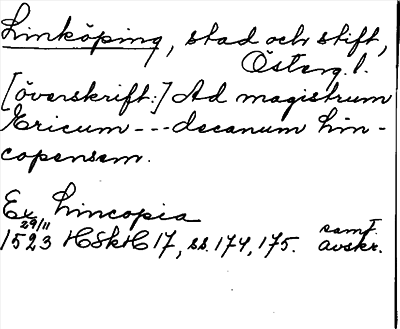 Linköping, stad och stift,
Österg. l.
[överskrift:] Ad magistrum
Ericum --- decanum Lin-
copensem.
Ex Lincopia
29/11
1523 HSkH 17, ss. 174, 175. samt. avskr.